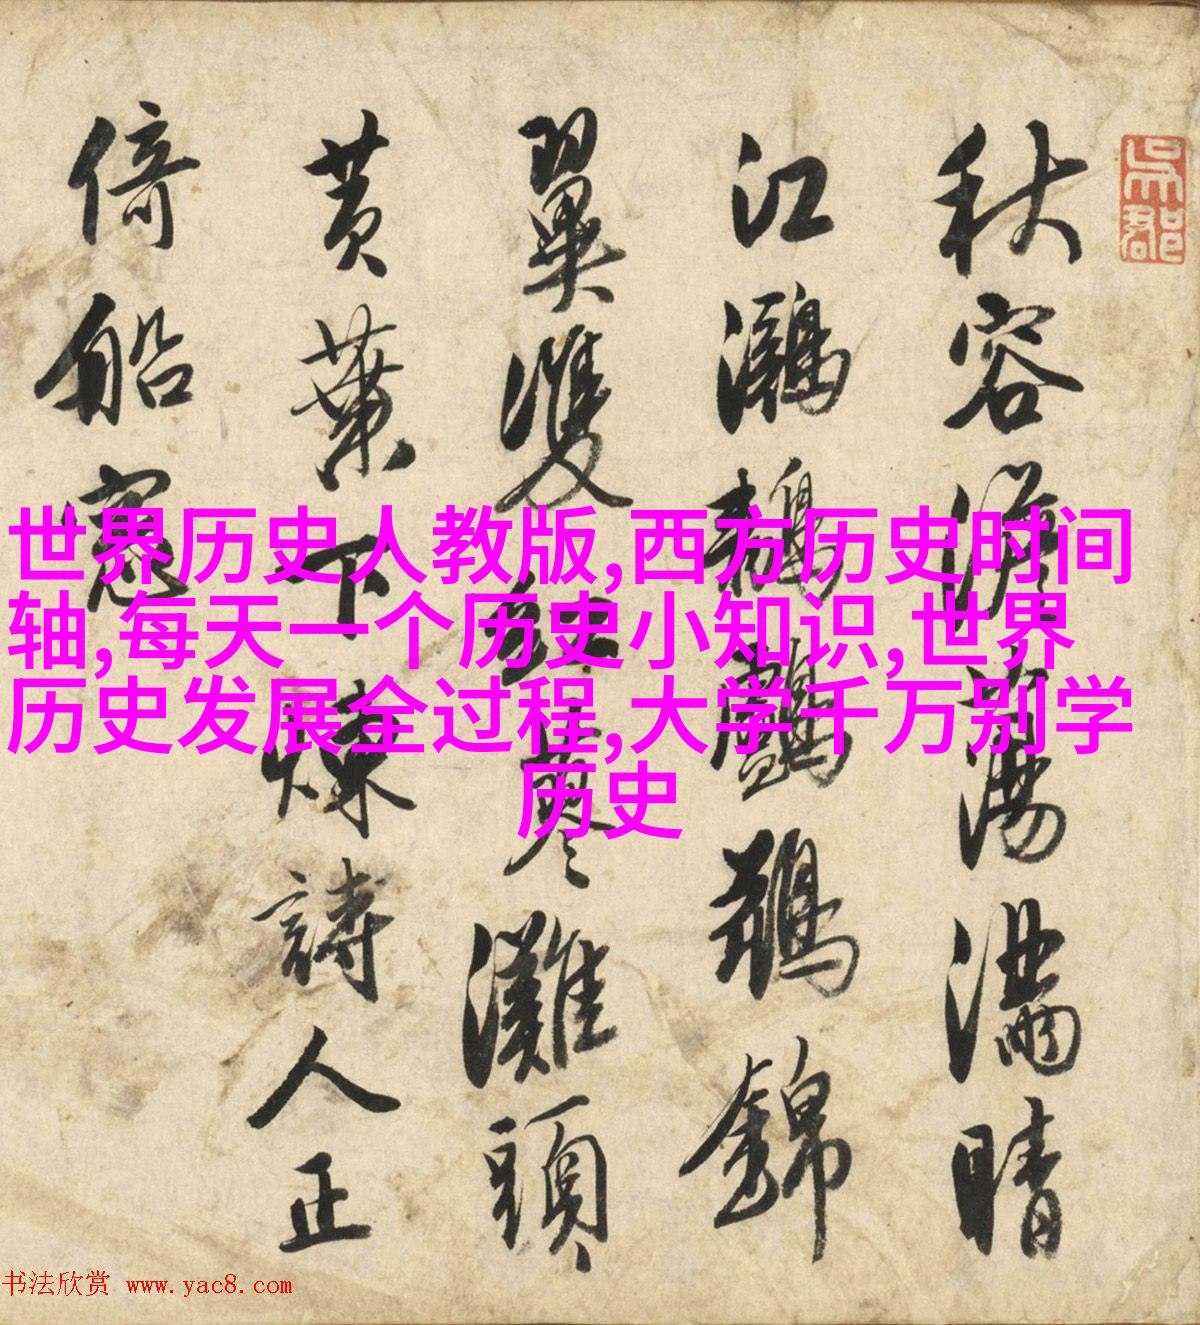 吳郡
秋容澹蕩滿晴
江鸂鶒鸕鷀錦
翼雙紅蓼灘頭
黄葉下煉詩人正
倚船窓
世界历史人教版,西方历史时间
轴,每天一个历史小知识,世界
历史发展全过程,大学千万别学
历史
书法欣赏 www.yac8.com